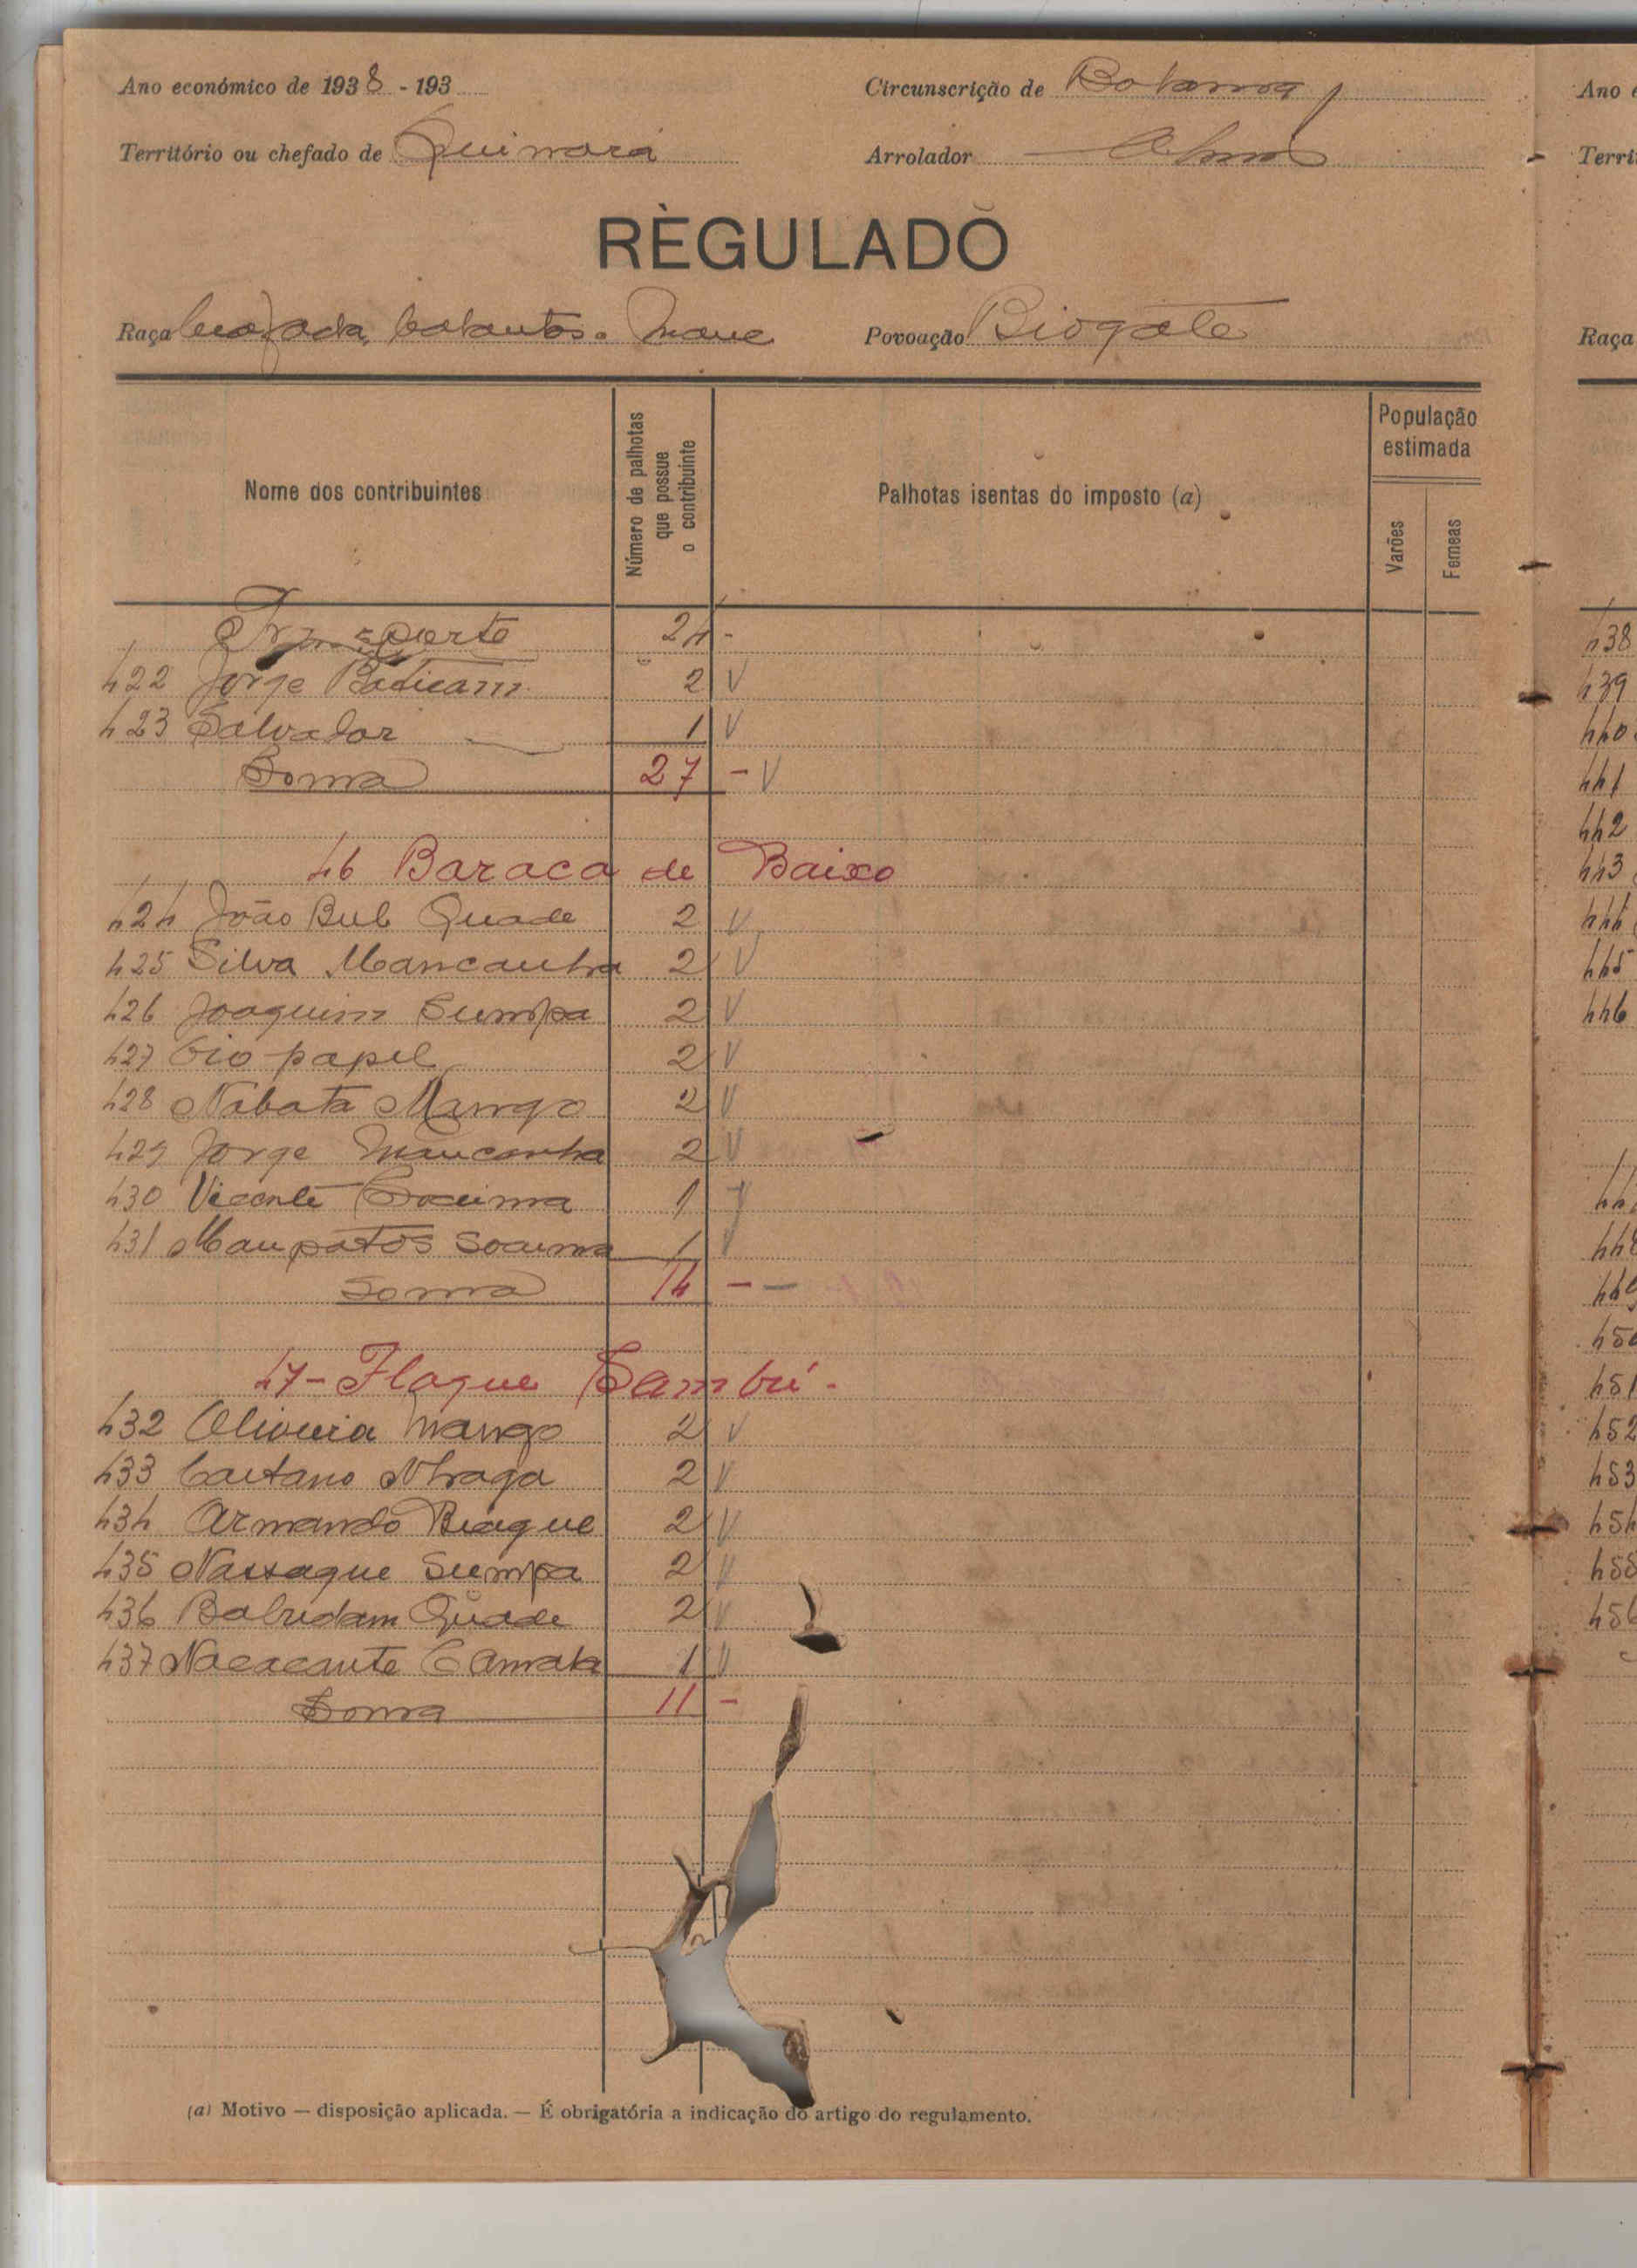 Ano económico de 1938 - 193
Circunscrição de
Território ou chefado de Quinara
Arrolador
REGULADO
Raça Beafada, balantas e
Povoação Biogate
Nome dos contribuintes
Número de palhotas que possue o contribuinte
Palhotas isentas do imposto (a)
População estimada
Varões
Femeas
Transporte 24 -
422 Jorge Baticam 2 V
423 Salvador 1 V
Soma 27 - V
46 Baraca de Baixo
424 João Bub Quade 2 V
425 Silva Mancanha 2 V
426 Joaquim Sumpa 2 V
427 papel 2 V
428 Nabata Mango 2 V
429 Jorge Mancanha 2 V
430 Vicente 1
431 1 V
Soma 14 - -
47 - Flaque Sambú -
432 Oliveira Mango 2 V
433 Caetano Nhaga 2 V
434 Armando Biague 2 V
435 Sumpa 2 V
436 Quade 2 V
437 Camata 1 V
Soma 11 -
(a) Motivo — disposição aplicada. — É obrigatória a indicação do artigo do regulamento.
Ano
Terri
Raça
438
439
440
441
442
443
444
445
446
448
449
450
451
452
453
454
455
456